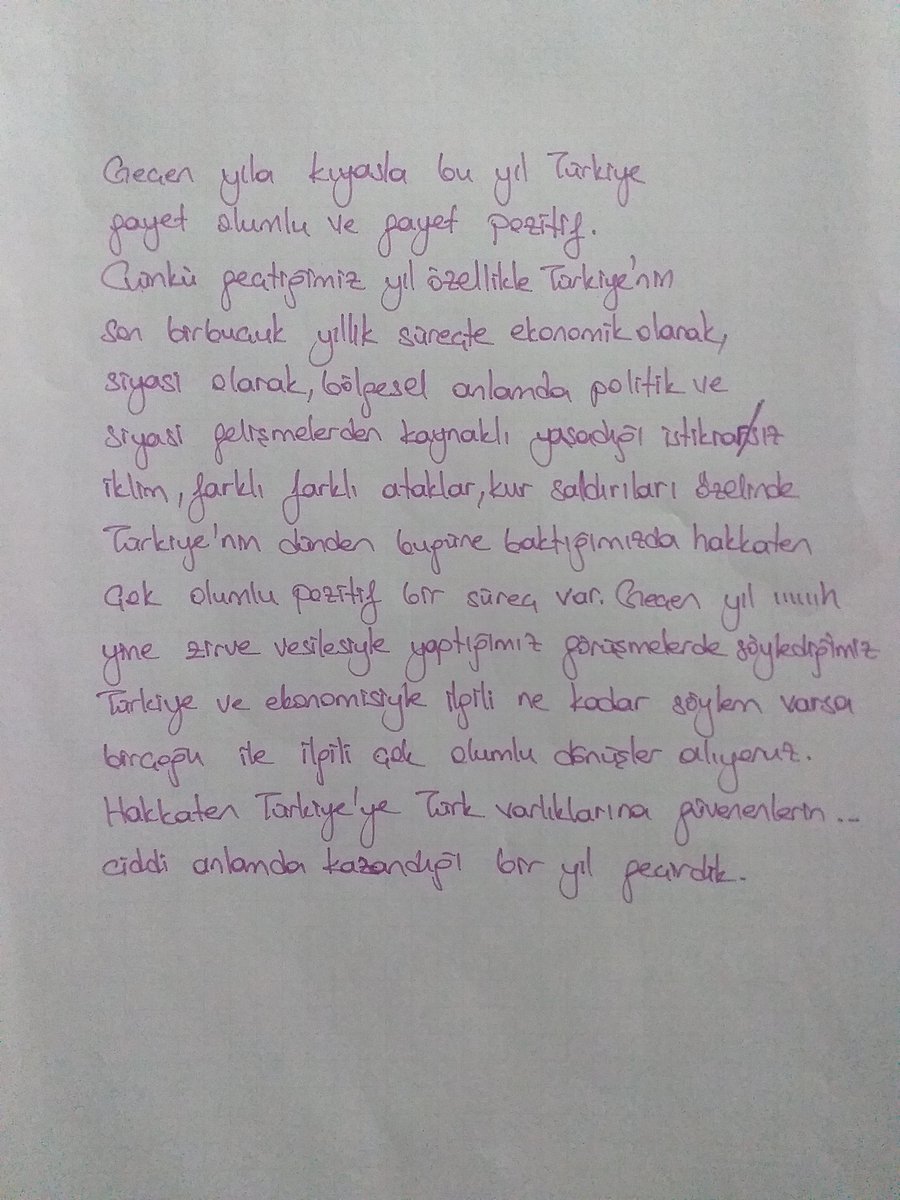 Geçen yıla kıyasla bu yıl Türkiye
gayet olumlu ve gayet pozitif.
Çünkü geçtiğimiz yıl özellikle Türkiye'nin
son birbuçuk yıllık süreçte ekonomik olarak,
siyasi olarak, bölgesel anlamda politik ve
siyasi gelişmelerden kaynaklı yaşadığı istikrarsız
iklim, farklı farklı ataklar, kur saldırıları özelinde
Türkiye'nin dünden bugüne baktığımızda hakkaten
çok olumlu pozitif bir süreç var. Geçen yıl ıııııh
yine zirve vesilesiyle yaptığımız görüşmelerde söylediğimiz
Türkiye ve ekonomisiyle ilgili ne kadar söylem varsa
birçoğu ile ilgili çok olumlu dönüşler alıyoruz.
Hakkaten Türkiye'ye Türk varlıklarına güvenenlerin...
ciddi anlamda kazandığı bir yıl geçirdik.